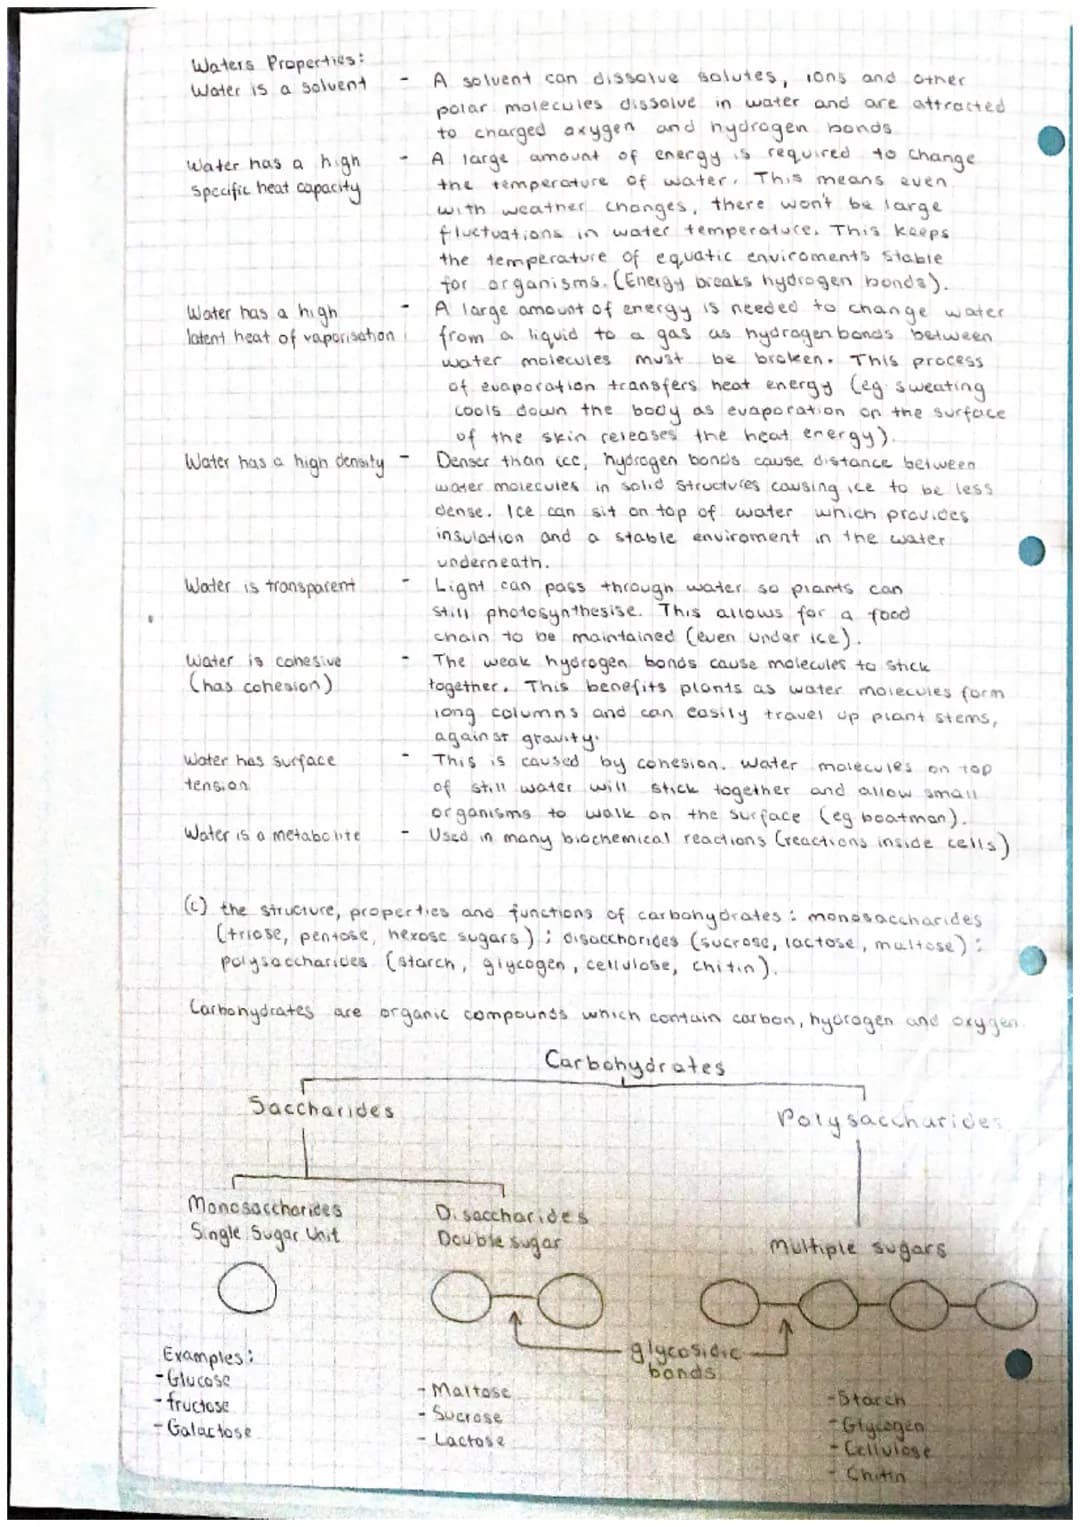 Waters Properties:
Water is a solvent - A solvent can dissolve solutes, ions and other
polar molecules dissolve in water and are attracted
to charged oxygen and hydrogen bonds
Water has a high - A large amount of energy is required to change
specific heat capacity the temperature of water. This means even
with weather changes, there won't be large
fluctuations in water temperature. This keeps
the temperature of equatic enviroments stable
for organisms. (Energy breaks hydrogen bonds).
Water has a high - A large amount of energy is needed to change water
latent heat of vaporisation from a liquid to a gas as hydrogen bonds between
water molecules must be broken. This process
of evaporation transfers heat energy (eg sweating
cools down the body as evaporation on the surface
of the skin releases the heat energy).
Water has a high density - Denser than ice, hydrogen bonds cause distance between
water molecules in solid structures causing ice to be less
dense. Ice can sit on top of water which provides
insulation and a stable enviroment in the water
underneath.
Water is transparent - Light can pass through water so plants can
still photosynthesise. This allows for a food
chain to be maintained (even under ice).
Water is cohesive - The weak hydrogen bonds cause molecules to stick
(has cohesion) together. This benefits plants as water molecules form
long columns and can easily travel up plant stems,
against gravity.
Water has surface - This is caused by cohesion. Water molecules on top
tension of still water will stick together and allow small
organisms to walk on the surface (eg boatman).
Water is a metabolite - Used in many biochemical reactions (reactions inside cells)
(c) the structure, properties and functions of carbohydrates: monosaccharides
(triose, pentose, hexose sugars); disaccharides (sucrose, lactose, maltose);
polysaccharides (starch, glycogen, cellulose, chitin).
Carbohydrates are organic compounds which contain carbon, hydrogen and oxygen.
Carbohydrates
Saccharides
Polysaccharides
Monosaccharides
Single Sugar Unit
Disaccharides
Double sugar
multiple sugars
glycosidic
bonds
Examples:
- Glucose
- fructose
- Galactose
- Maltose
- Sucrose
- Lactose
- Starch
- Glycogen
- Cellulose
- Chitin